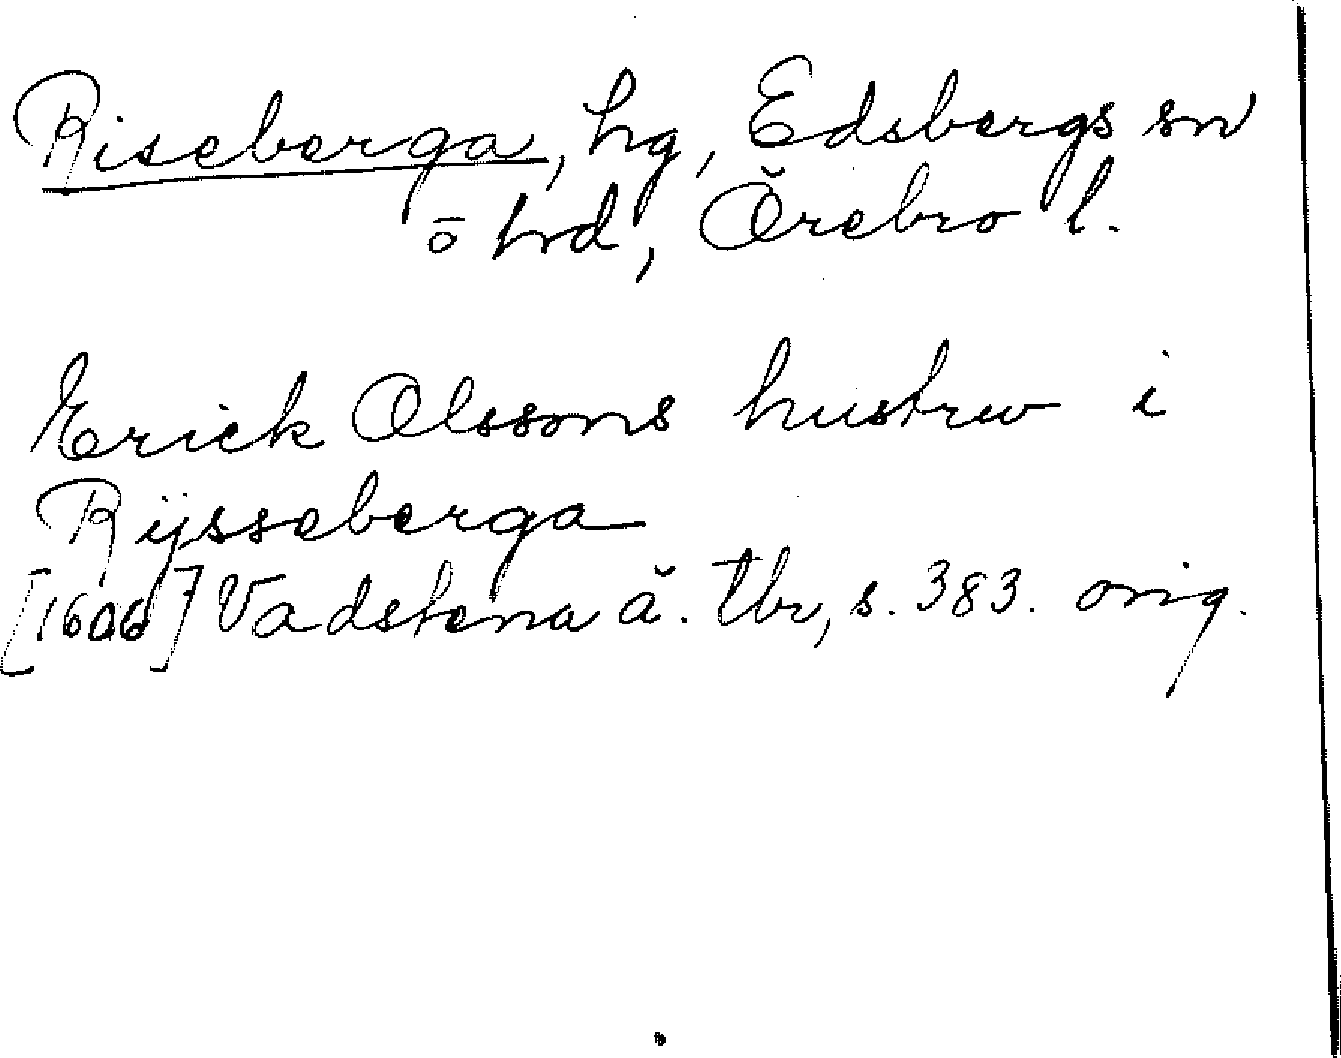 Riseberga, hg, Edsbergs sn
o hrd, Örebro l.
Erick Olssons hustrw i
Rijsseberga
[1606] Vadstena ä. tbr, s. 383. orig.